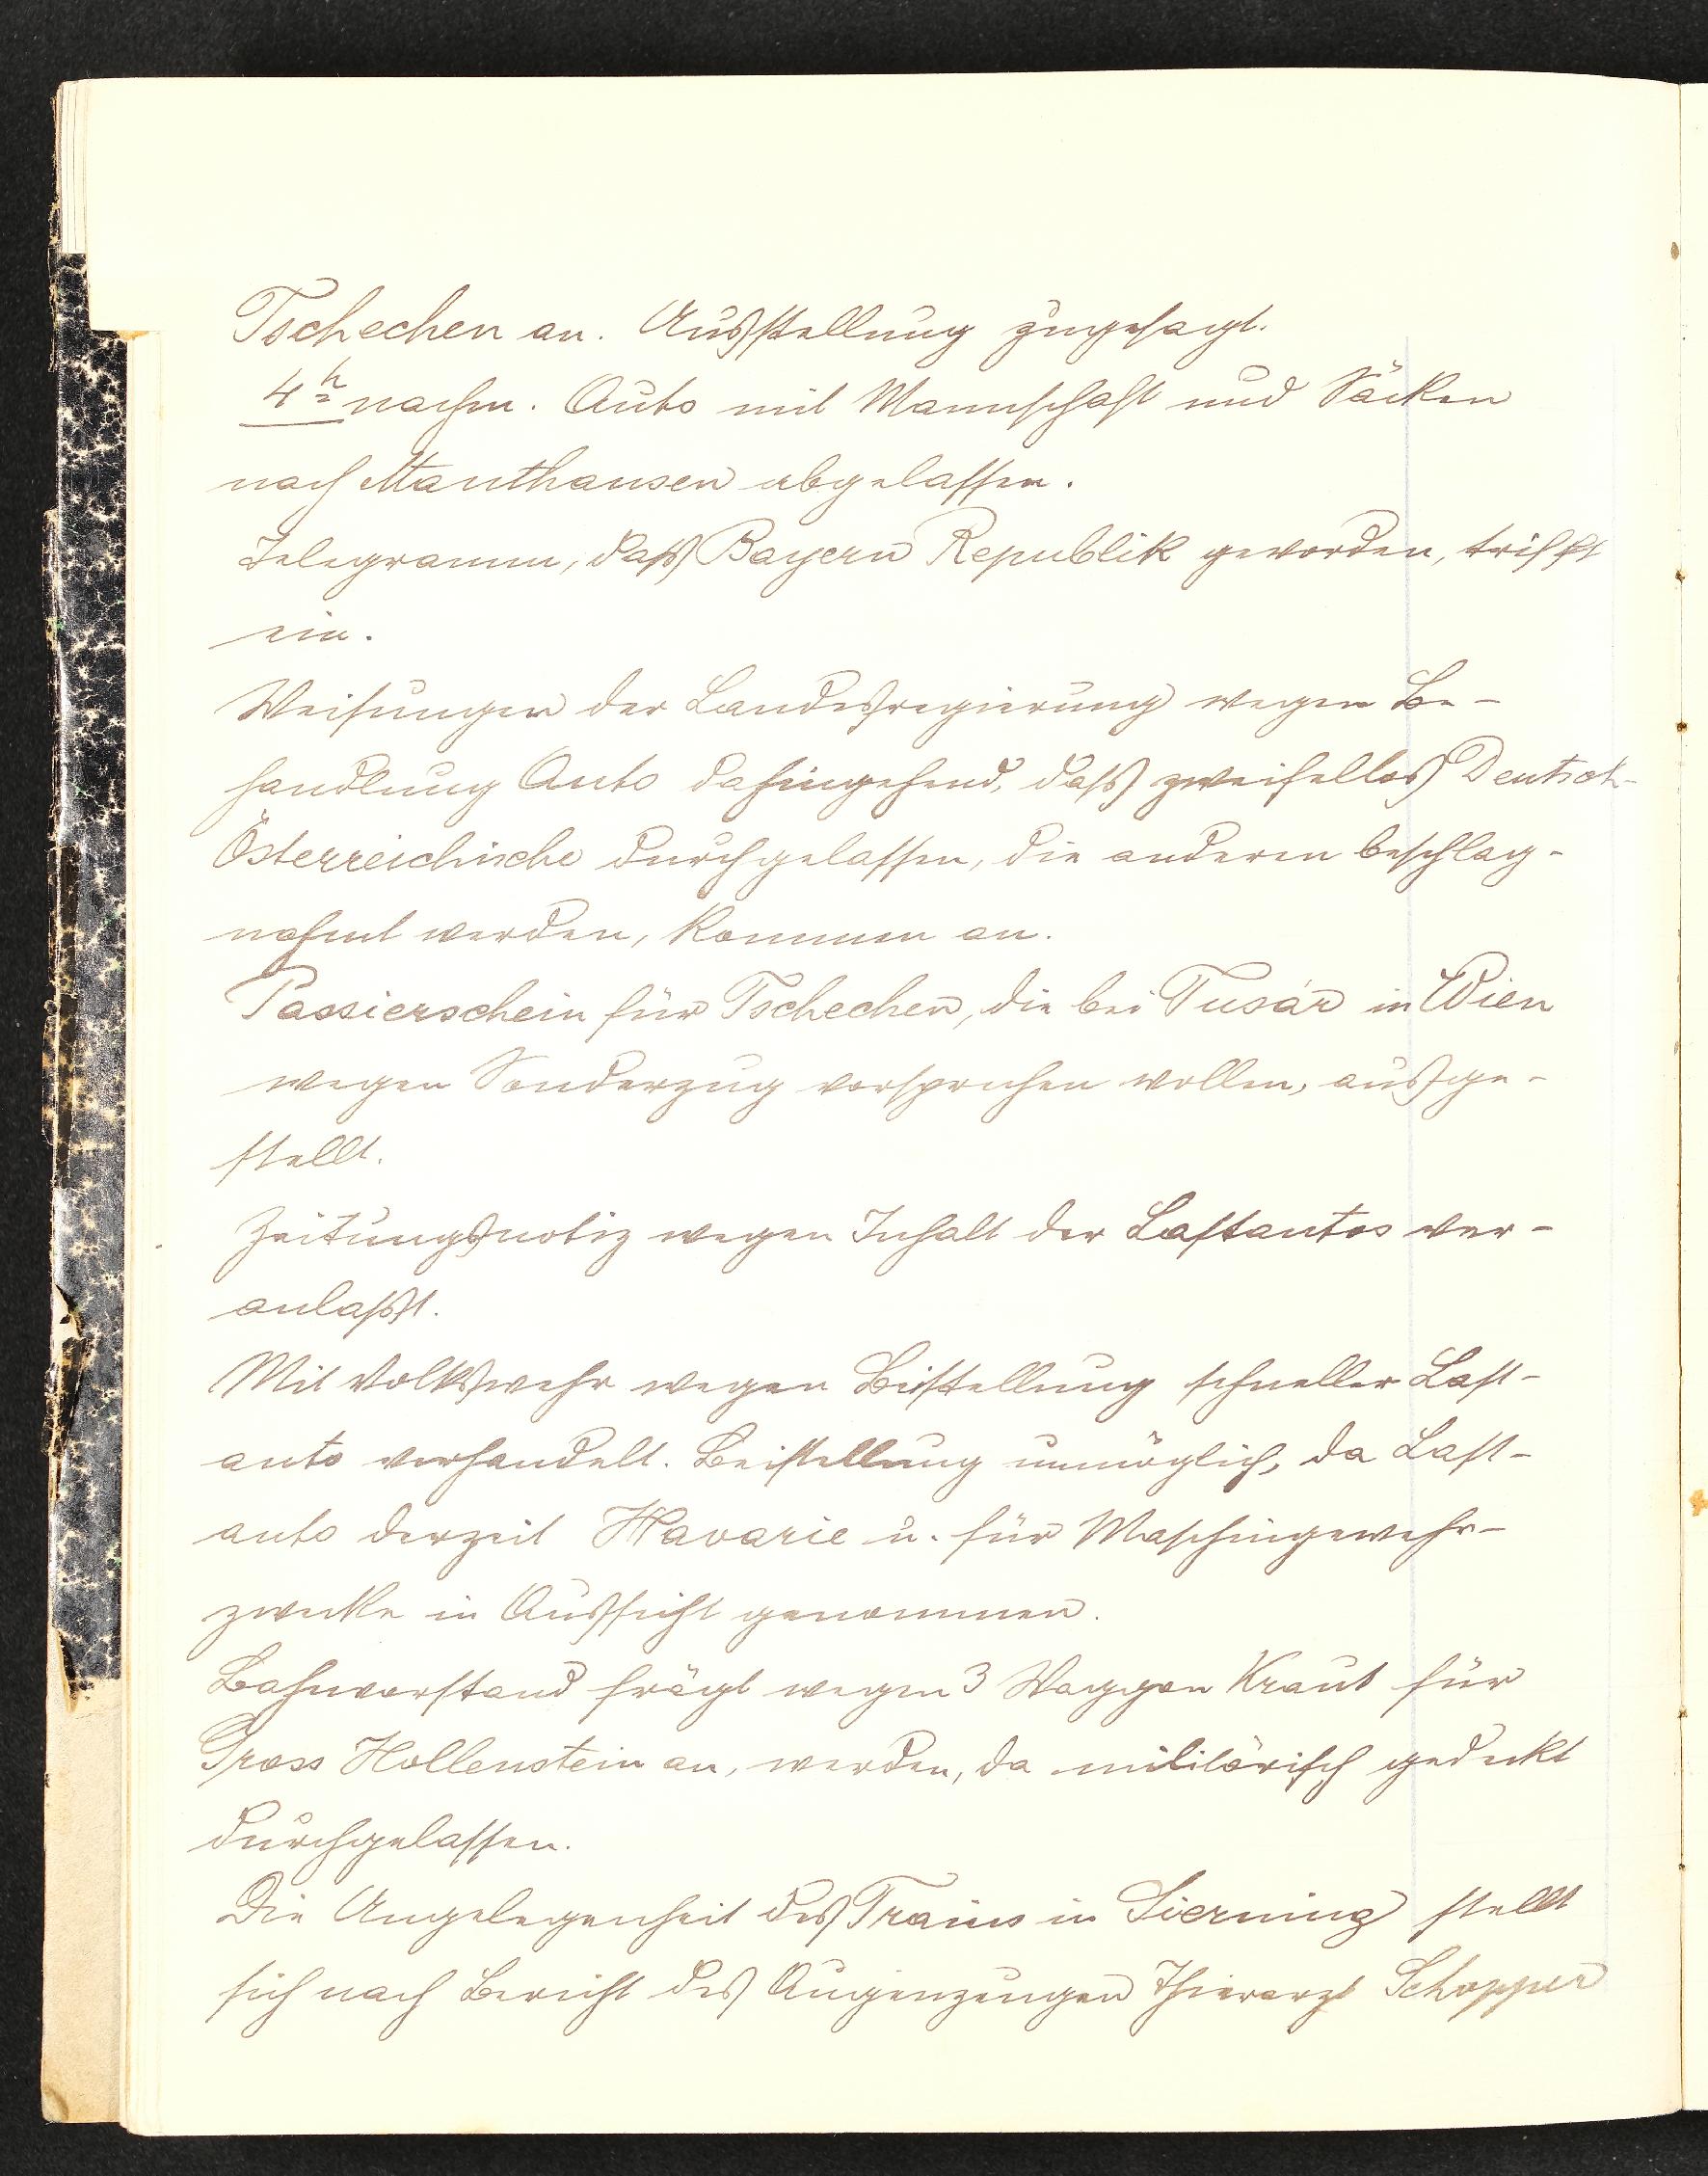 Tschechen an. Ausstellung zugesagt.
4h nachm. Auto mit Mannschaft und Säcken
nach Mauthausen abgelassen.
Telegramm, dass Bayern Republik geworden, trifft
ein.
Weisungen der Landesregierung wegen Be-
handlung Auto dahingehend, dass zweifellos Deutsch-
Österreichische durchgelassen, die anderen beschlag-
nahmt werden, kommen an.
Passierschein für Tschechen, die bei Tusár in Wien
wegen Sonderzug vorsprechen wollen, ausge-
stellt.
Zeitungsnotiz wegen Inhalt der Lastautos ver-
anlasst.
Mit Volkswehr wegen Beistellung schneller Last-
auto verhandelt. Beistellung unmöglich, da Last-
auto derzeit Havarie u. für Maschingewehr-
zwecke in Aussicht genommen.
Bahnvorstand frägt wegen 3 Waggon Kraut für
Gross Hollenstein an, werden, da militärisch gedeckt
durchgelassen.
Die Angelegenheit des Trains in Sierning stellt
sich nach Bericht des Augenzeugen Thierarzt Schopper